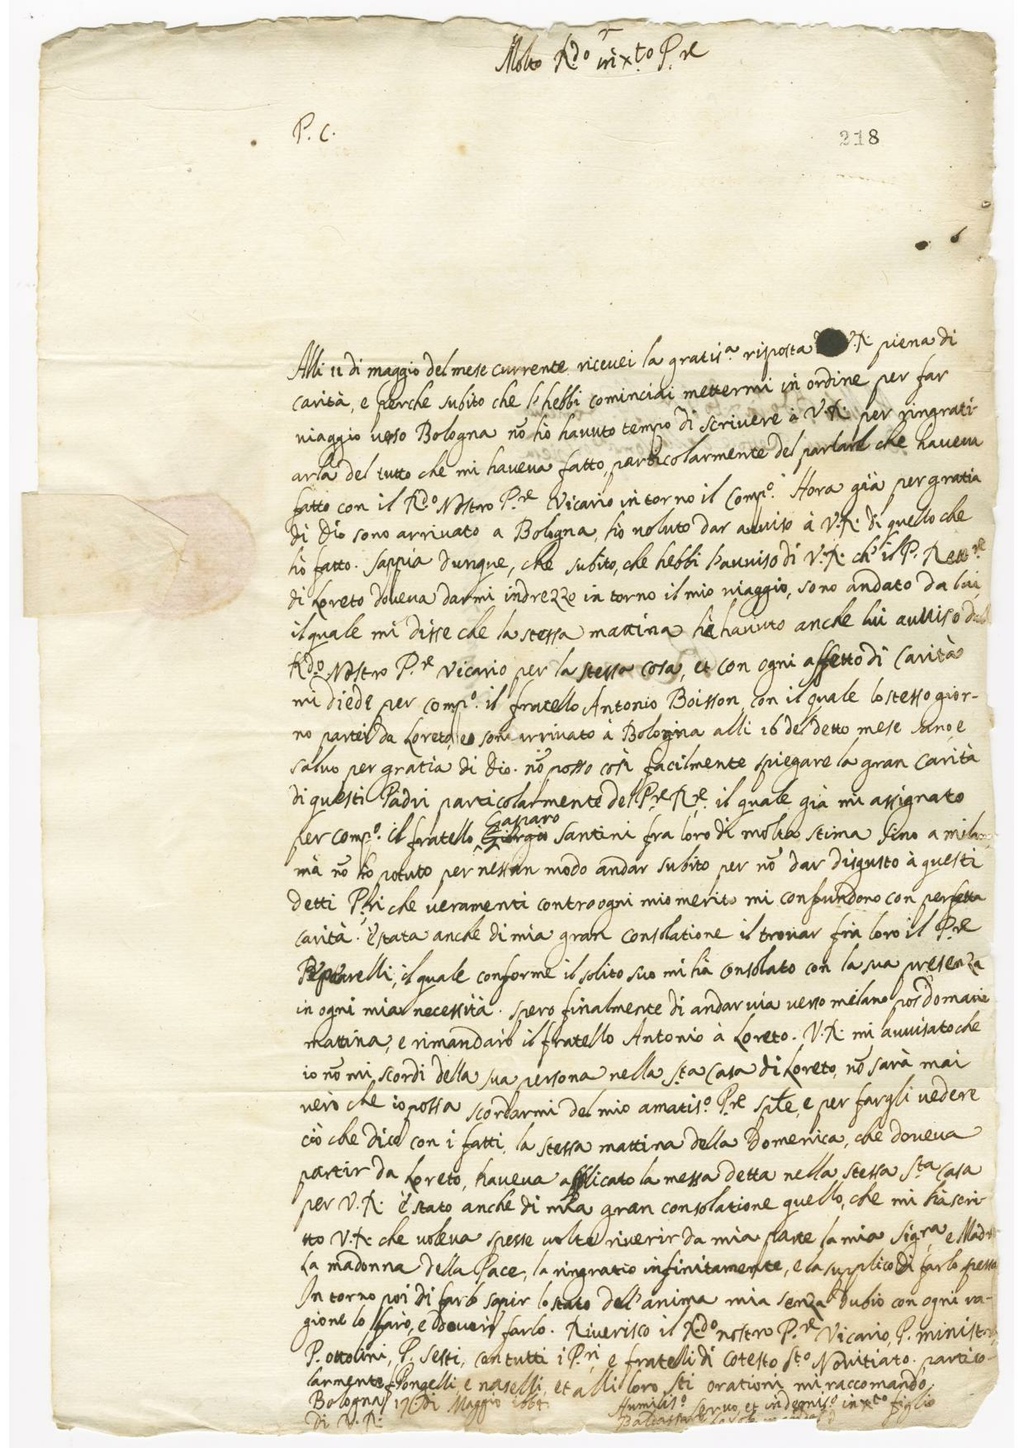 Molto R.do in x.to P.re
P. C.
218
Alli 11 di maggio del mese currente ricevei la gratis.a risposta V.R. piena di
carità, e perche subito che l'hebbi cominciai mettermi in ordine per far
viaggio verso Bologna nō hò havuto tempo di scrivere à V.R. per ringrati-
arla del tutto che mi haveva fatto, particolarmente del parlare che haveva
fatto con il R.do Nostro P.re Vicario intorno il Comp.o. Hora già per gratia
di Dio sono arrivato a Bologna, hò voluto dar avviso à V.R. di quello che
hò fatto. Sappia dunque, che subito, che hebbi l'avviso di V.R. ch' il P. Rett.re
di Loreto doveva darmi indrezzo intorno il mio viaggio, sono andato da lui
il quale mi disse che la stessa mattina hà havuto anche lui avviso dal
R.do Nostro P.re Vicario per la stessa cosa, et con ogni affetto di carità
mi diede per comp.o il fratello Antonio Boisson, con il quale lo stesso gior-
no partei da Loreto e son arrivato à Bologna alli 16 del detto mese sano e
salvo per gratia di Dio. nō posso così facilmente spiegare la gran carità
di questi Padri particolarmente del P.re R.re il quale già mi assignato
per comp.o il fratello Gasparo Santini fra loro di molta stima sino a mila
mà nō hò potuto per nessun modo andar subito per nō dar disgusto à questi
detti P.ri che veramenti contro ogni mio merito mi confundono con perfetta
carità. È stata anche di mia gran consolatione il trovar frà loro il P.re
il quale conforme il solito suo mi hà consolato con la sua presenza
in ogni mia necessità. spero finalmente di andar via verso milano posdomane
mattina, e rimandarò il fratello Antonio à Loreto. V.R. mi avvisato che
io nō mi scordi della sua persona nella S.ta Casa di Loreto, nō sarà mai
vero che io possa scordarmi del mio amatis.o P.re sp̄le, e per fargli vedere
ciò che dico con i fatti, la stessa mattina della Domenica, che doveva
partir da Loreto, haveva applicato la messa detta nella stessa S.ta Casa
per V.R. È stato anche di mia gran consolatione quello, che mi hà scri-
tto V.R. che voleva spesse volte riverir da mia parte la mia Sig.ra, e Madre
La madonna della Pace, la ringratio infinitamente, e la supplico di farlo spesso
Intorno poi di farlo saper lo stato dell'anima mia senza dubio con ogni ra-
gione lo farò, e doverò farlo. Riverisco il R.do nostro P.re Vicario, P. ministro
P. Ottolini, P. Sesti, con tutti i P.ri e fratelli di cotesto S.to Novitiato. partico-
larmente Pongelli e naselli, et alli loro S.ti orationi mi raccomando.
Bologna 17 di Maggio 1664
Di V.R.
Humilis.o servo, et indegnis.o in x.to figlio